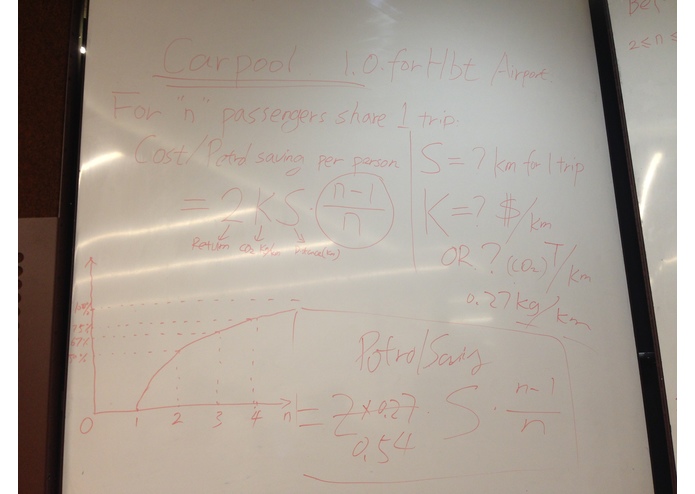 Carpool 1.0. for Hbt Airport
For "n" passengers share 1 trip.
Cost/Petrol saving per person
= 2KS · (n-1)/n
Return
S = ? km for 1 trip
K = ? $/km
OR ? (CO2)T/km
0.27kg/km
75%
67%
0 1 2 3 4 n
Petrol/Saving
= 2×0.27 S · (n-1)/n
0.54
2≤n≤